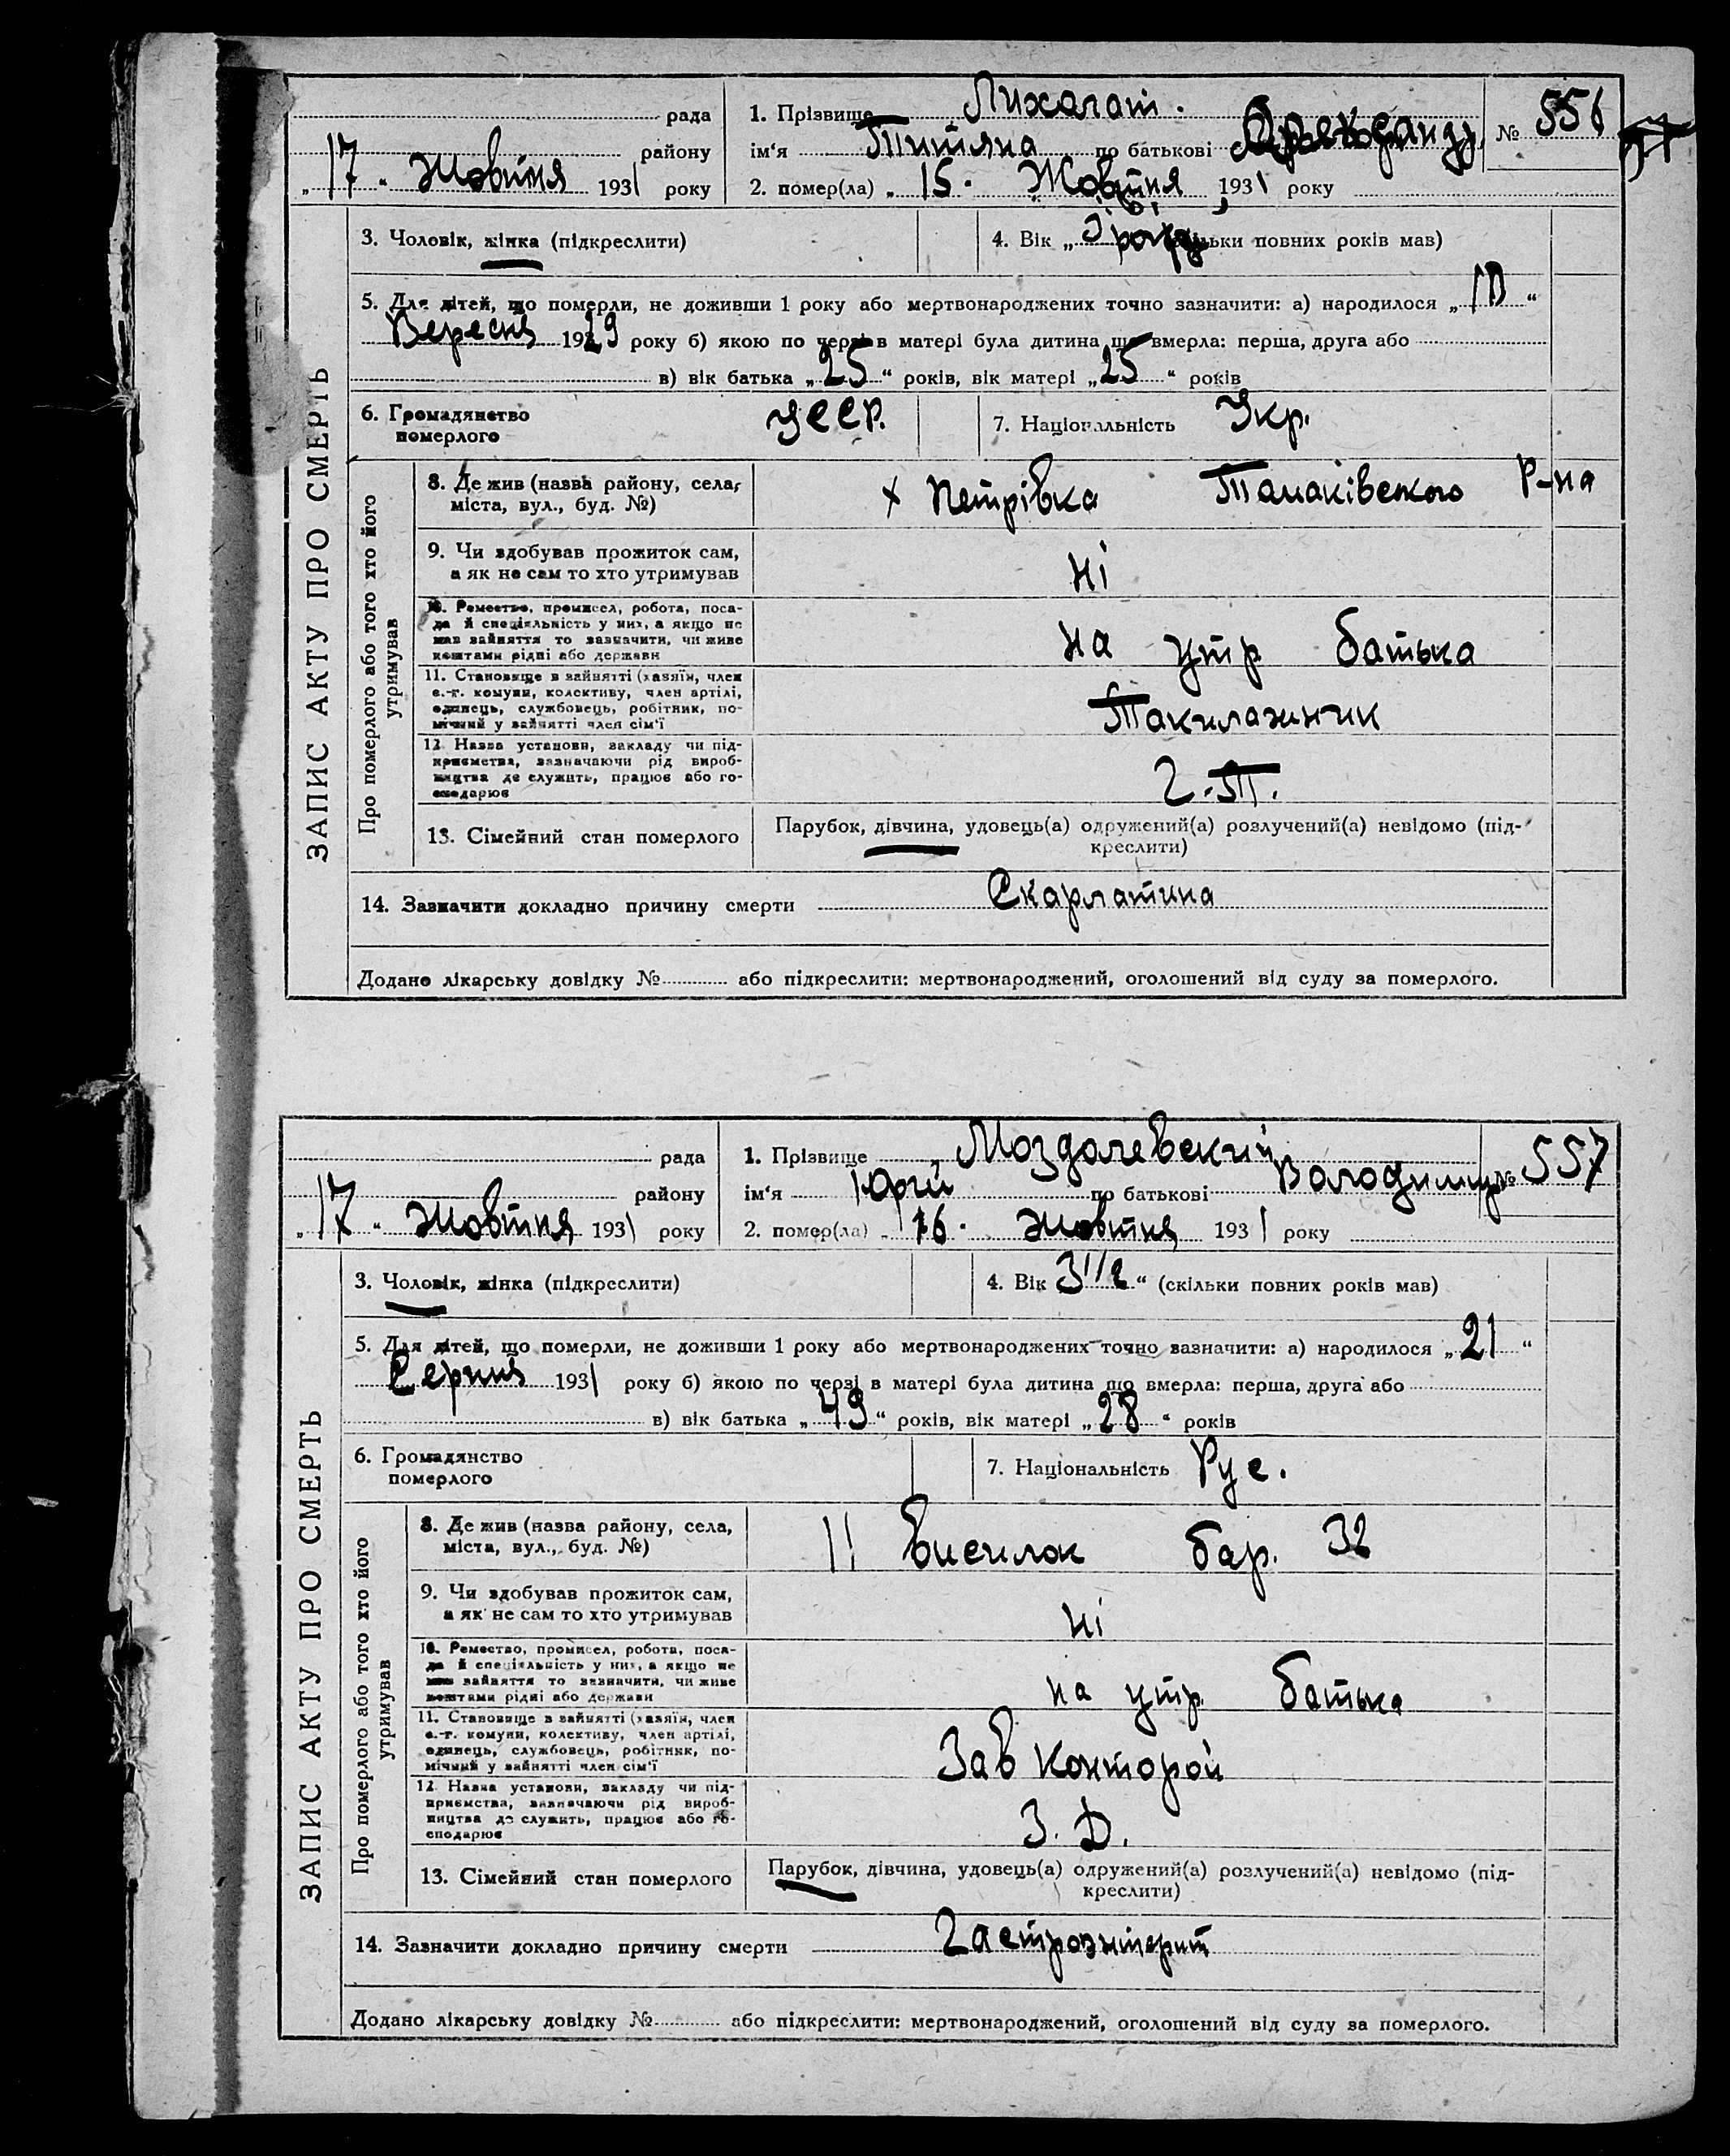 рада
1. Прізвище Лихагат.
№ 556
району
ім‘я Титяна по батькові
„17“ Жовтня 1931 року
2. помер(ла) „15. Жовтня 1931 року
3. Чоловік, жінка (підкреслити)
4. Вік „ 3 роки скільки повних років мав)
5. Для дітей, що померли, не доживши 1 року або мертвонароджених точно зазначити: а) народилося „10“
Вересня 1929 року б) якою по черзі в матері була дитина що вмерла: перша, друга або
в) вік батька „25“ років, вік матері „25“ років
6. Громадянство
померлого
УССР.
7. Національність Укр.
ЗАПИС АКТУ ПРО СМЕРТЬ
Про померлого або того хто його
утримував
8. Де жив (назва району, села,
міста, вул., буд. №)
х Петрівка Томаківського Р-на
9. Чи здобував прожиток сам,
а як не сам то хто утримував
Ні
10. Ремество, промисел, робота, поса-
да й спеціяльність у них, а якщо не
мав зайняття то зазначити, чи живе
коштами рідні або держави
на утр батька
11. Становище в зайнятті (хазяїн, член
с.-г. комуни, колективу, член артілі,
одинець, службовець, робітник, по-
мічний у зайнятті член сім‘ї
Такилажник
12. Назва установи, закладу чи під-
приємства, зазначаючи рід вироб-
ництва де служить, працює або го-
сподарює
Г.Т.
13. Сімейний стан померлого
Парубок, дівчина, удовець(а) одружений(а) розлучений(а) невідомо (під-
креслити)
14. Зазначити докладно причину смерти Скарлатина
Додано лікарську довідку № або підкреслити: мертвонароджений, оголошений від суду за померлого.
рада
1. Прізвище Моздалевский
№ 557
району
ім‘я Юрій по батькові Володимир
„17“ Жовтня 1931 року
2. помер(ла) „16. Жовтня 1931 року
3. Чоловік, жінка (підкреслити)
4. Вік 3 1/2 “ (скільки повних років мав)
5. Для дітей, що померли, не доживши 1 року або мертвонароджених точно зазначити: а) народилося „21“
Серпня 1931 року б) якою по черзі в матері була дитина що вмерла: перша, друга або
в) вік батька „49“ років, вік матері „28“ років
6. Громадянство
померлого
7. Національність Рус.
ЗАПИС АКТУ ПРО СМЕРТЬ
Про померлого або того хто його
утримував
8. Де жив (назва району, села,
міста, вул., буд. №)
11 висилок бар. 32
9. Чи здобував прожиток сам,
а як не сам то хто утримував
Ні
10. Ремество, промисел, робота, поса-
да й спеціяльність у них, а якщо не
мав зайняття то зазначити, чи живе
коштами рідні або держави
на утр. батька
11. Становище в зайнятті (хазяїн, член
с.-г. комуни, колективу, член артілі,
одинець, службовець, робітник, по-
мічний у зайнятті член сім‘ї
Зав Конторой
12. Назва установи, закладу чи під-
приємства, зазначаючи рід вироб-
ництва де служить, працює або го-
сподарює
З. Д.
13. Сімейний стан померлого
Парубок, дівчина, удовець(а) одружений(а) розлучений(а) невідомо (під-
креслити)
14. Зазначити докладно причину смерти Гастроэнтерит
Додано лікарську довідку № або підкреслити: мертвонароджений, оголошений від суду за померлого.